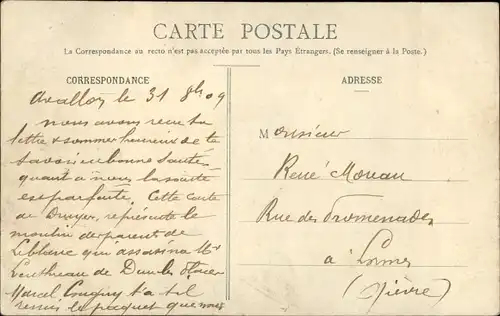 CARTE POSTALE
La Correspondance au recto n'est pas acceptée par tous les Pays Étrangers. (Se renseigner à la Poste.)
CORRESPONDANCE
Avallon le 31 8bre 09
nous avons recu ta
lettre & sommes heureux de te
savoir en bonne santé
quant a nous la santé
est parfaite. Cette carte
de représente le
moulin de parents de
Leblanc qui assasina Mr
de
Marcel t'a t'il
remis le paquet que nous
ADRESSE
Monsieur
René Moreau
Rue des Promenades
à Lormes
(Nièvre)